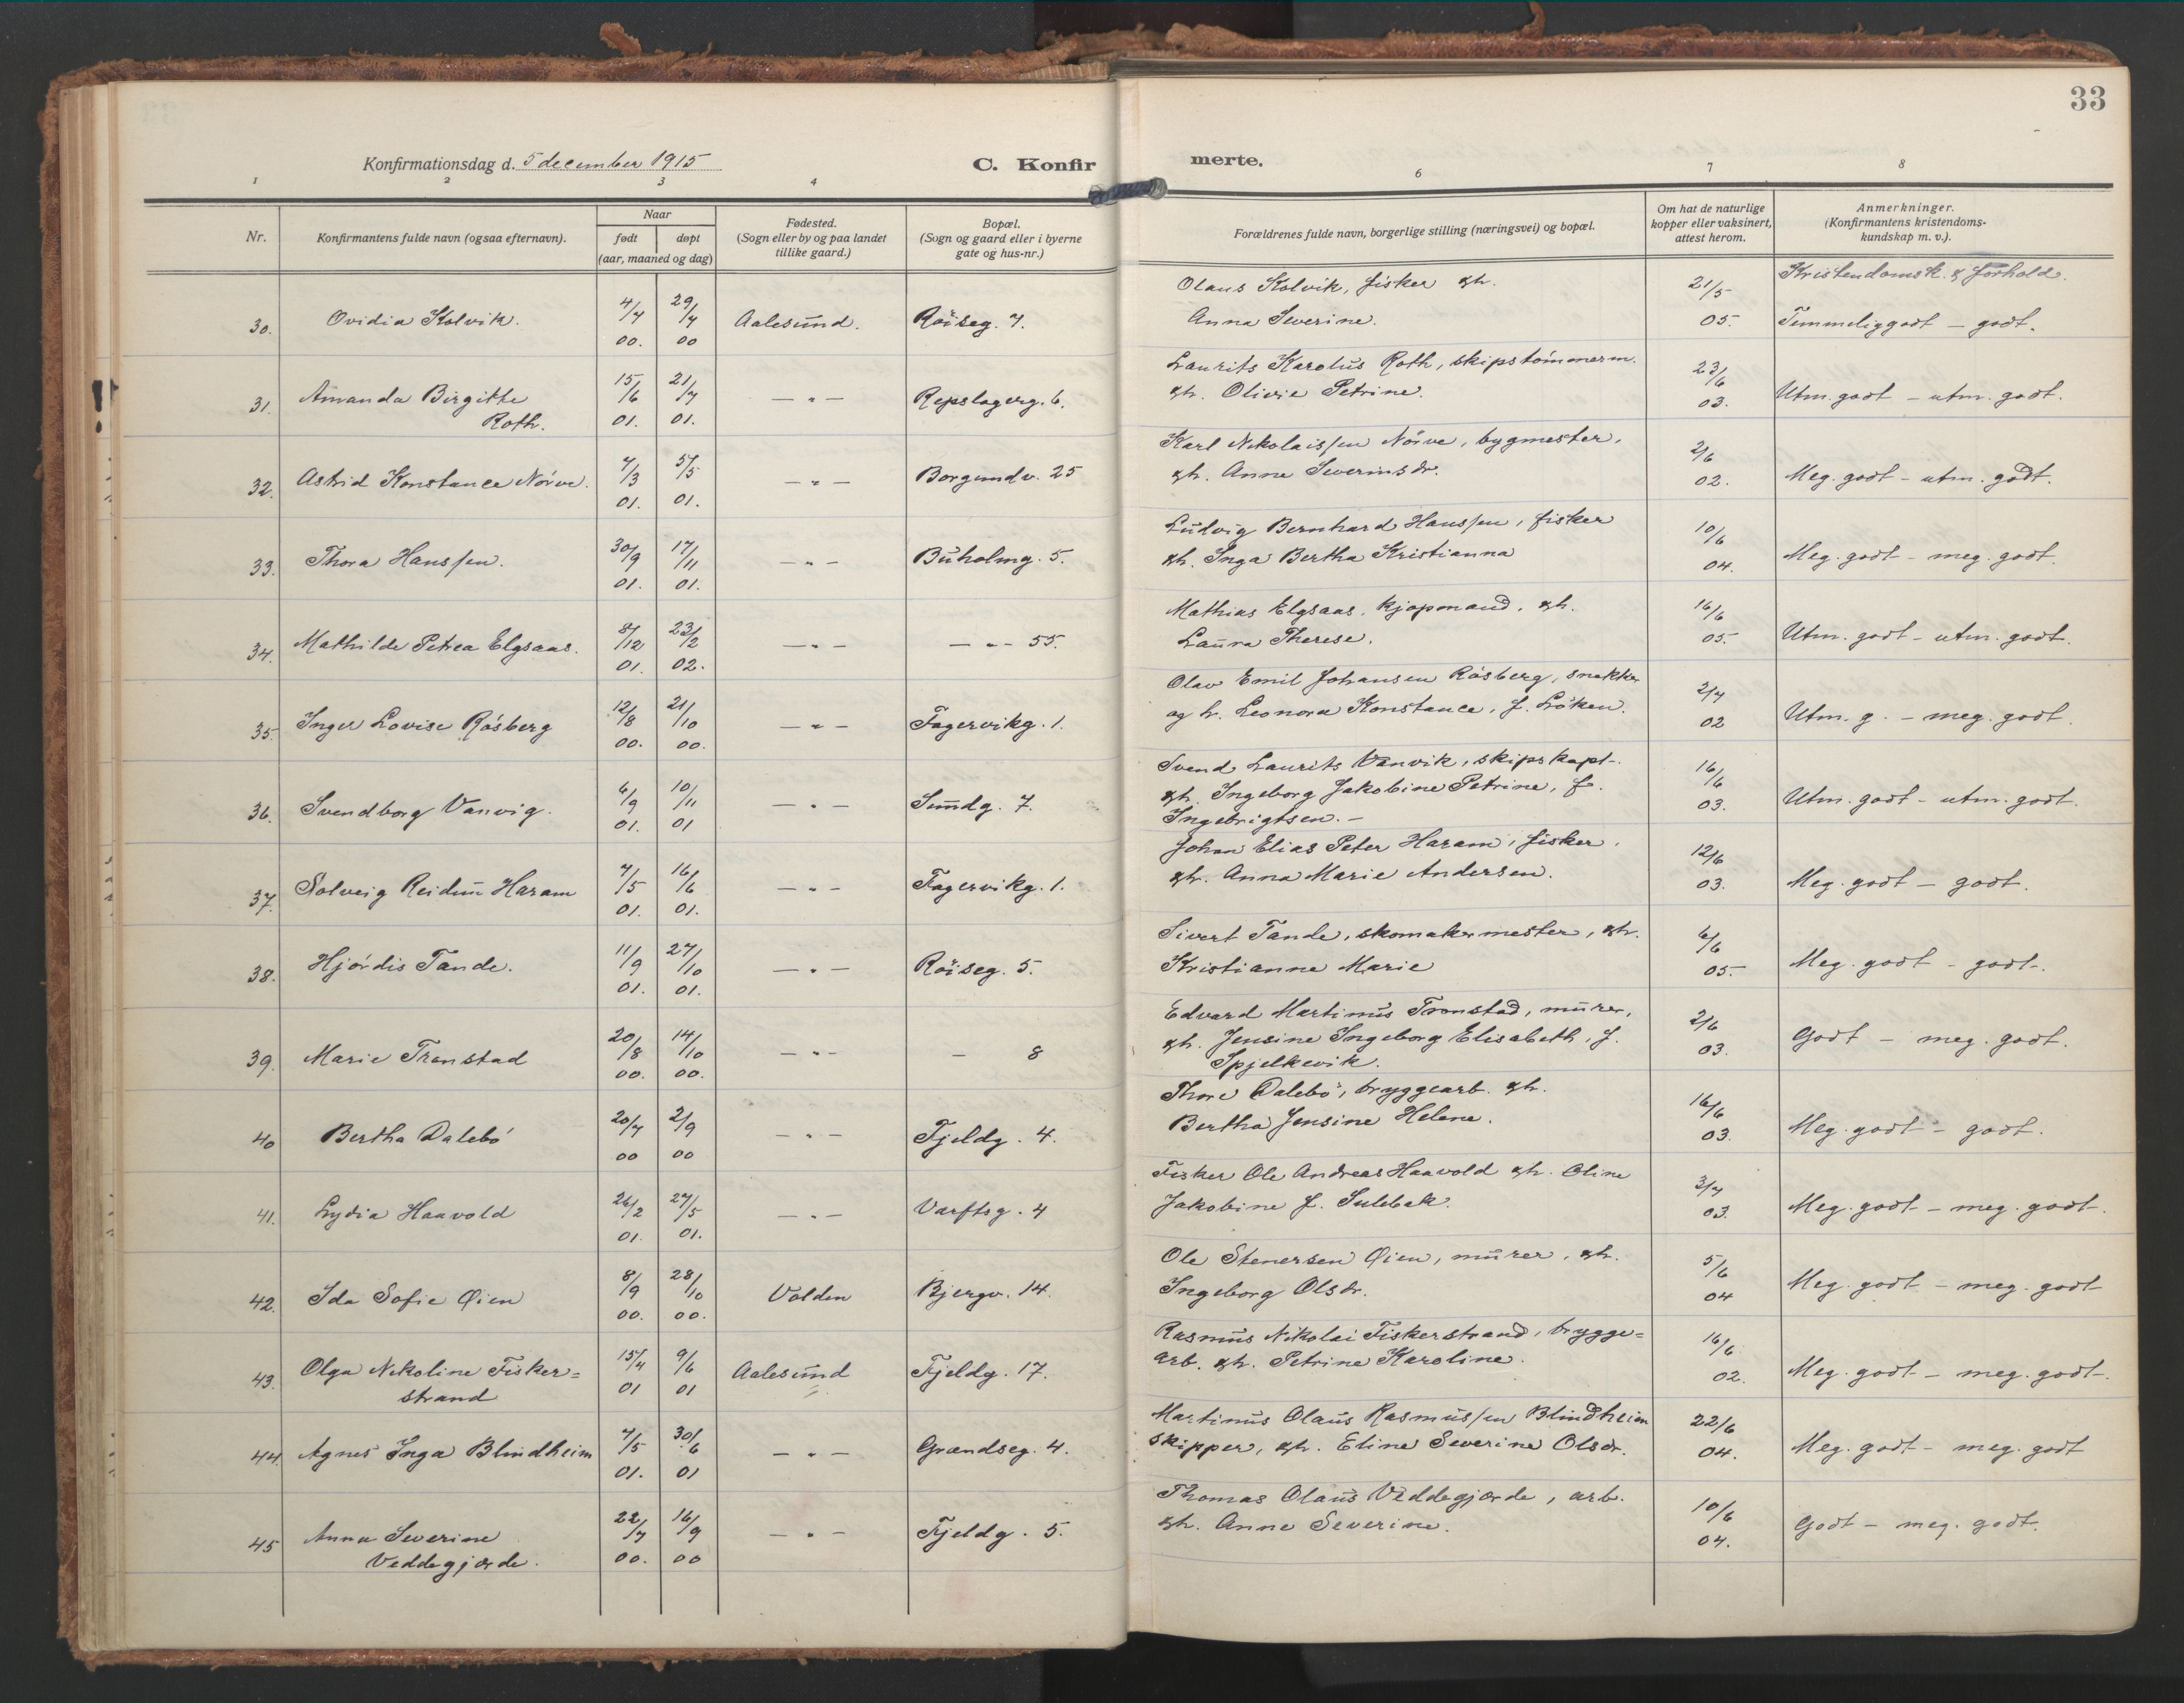 33
Konfirmationsdag d. 5 december 1915
C. Konfir
merte.
1 2 3 4 6 7 8
Nr.
Konfirmantens fulde navn (ogsaa efternavn).
Naar
født døpt
(aar, maaned og dag)
Fødested.
(Sogn eller by og paa landet
tillike gaard.)
Bopæl.
(Sogn og gaard eller i byerne
gate og hus-nr.)
Forældrenes fulde navn, borgerlige stilling (næringsvei) og bopæl.
Om hat de naturlige
kopper eller vaksinert,
attest herom.
Anmerkninger.
(Konfirmantens kristendoms-
kundskap m. v.).
Kristendomsk. & forhold.
30. Ovidia Kolvik. 4/7 00. 29/7 00 Aalesund. Röiseg. 7.
Olaus Kolvik, fisker &h.
Anna Severine.
21/5 05. Temmelig godt – godt.
31. Amanda Birgitte
Roth. 15/6 01. 21/7 01. — " — Repslagerg. 6.
Laurits Karolus Roth, skipstömmerm.
&h. Olivie Petrine.
23/6 03. Utm. godt – utm. godt.
32. Astrid Konstance Nörve. 7/3 01. 5/5 01. — " — Borgundv. 25
Karl Nikolaissen Nörve, bygmester,
&h. Anne Severinsdr.
2/6 02. Meg. godt – utm. godt.
33. Thora Hanssen. 30/9 01. 17/11 01. — " — Buholmg. 5.
Ludvig Bernhard Hanssen, fisker
&h. Inga Bertha Kristianna
10/6 04. Meg. godt – meg. godt.
34. Mathilde Petrea Elgsaas. 8/12 01. 23/2 02. — " — — " — 55.
Mathias Elgsaas, kjøpmand, &h.
Laura Therese.
16/6 05. Utm. godt – utm. godt.
35. Inger Lovise Rösberg 12/8 00. 21/10 00. — " — Fagervikg. 1.
Olav Emil Johansen Rösberg, snekker
og h. Leonora Konstance, f. Löken.
2/7 02 Utm. g. – meg. godt.
36. Svendborg Vanvig. 6/9 01. 10/11 01 — " — Sundg. 7.
Svend Laurits Vanvik, skipskapt.
&h. Ingeborg Jakobine Petrine, f.
Ingebrigtsen. –
16/6 03. Utm. godt – utm. godt.
37. Solveig Reidun Haram 7/5 01. 16/6 01. — " — Fagervikg. 1.
Johan Elias Peter Haram, fisker,
&h. Anna Marie Andersen.
12/6 03. Meg. godt – godt.
38. Hjördis Tande. 11/9 01. 27/10 01. — " — Röiseg. 5.
Sivert Tande, skomakermester, &h.
Kristianne Marie
6/6 05. Meg. godt – godt.
39. Marie Tronstad 20/8 00. 14/10 00. — " — – 8
Edvard Martinus Tronstad, murer,
&h. Jensine Ingeborg Elisabeth, f.
Spjelkevik.
2/6 03. Godt – meg. godt.
40 Bertha Dalebö 20/7 00 2/9 00 — " — Fjeldg. 4.
Thore Dalebö, bryggearb. &h.
Bertha Jensine Helene.
16/6 03. Meg. godt – godt.
41. Lydia Haavold 26/2 01. 27/5 01. — " — Varftsg. 4
Fisker Ole Andreas Haavold &h. Oline
Jakobine f. Sulebak.
3/7 03. Meg. godt – meg. godt.
42. Ida Sofie Øien 8/9 00. 28/10 00. Volden Bjergv. 14.
Ole Stenersen Øien, murer, &h.
Ingeborg Olsdr.
5/6 04 Meg. godt – meg. godt
43. Olga Nikoline Fisker=
strand 15/4 01 9/6 01 Aalesund Fjeldg. 17.
Rasmus Nikolai Fiskerstrand, brygge=
arb. &h. Petrine Karoline.
16/6 02. Meg. godt – meg. godt.
44. Agnes Inga Blindheim 7/5 01. 30/6 01 — " — Grændseg. 4.
Martinus Olaus Rasmussen Blindheim
skipper, &h. Eline Severine Olsdr.
22/6 04. Meg. godt – meg. godt
45 Anna Severine
Veddegjærde. 22/7 00. 16/9 00 — " — Fjeldg. 5.
Thomas Olaus Veddegjærde, arb.
&h. Anne Severine.
10/6 04. Godt – meg. godt.